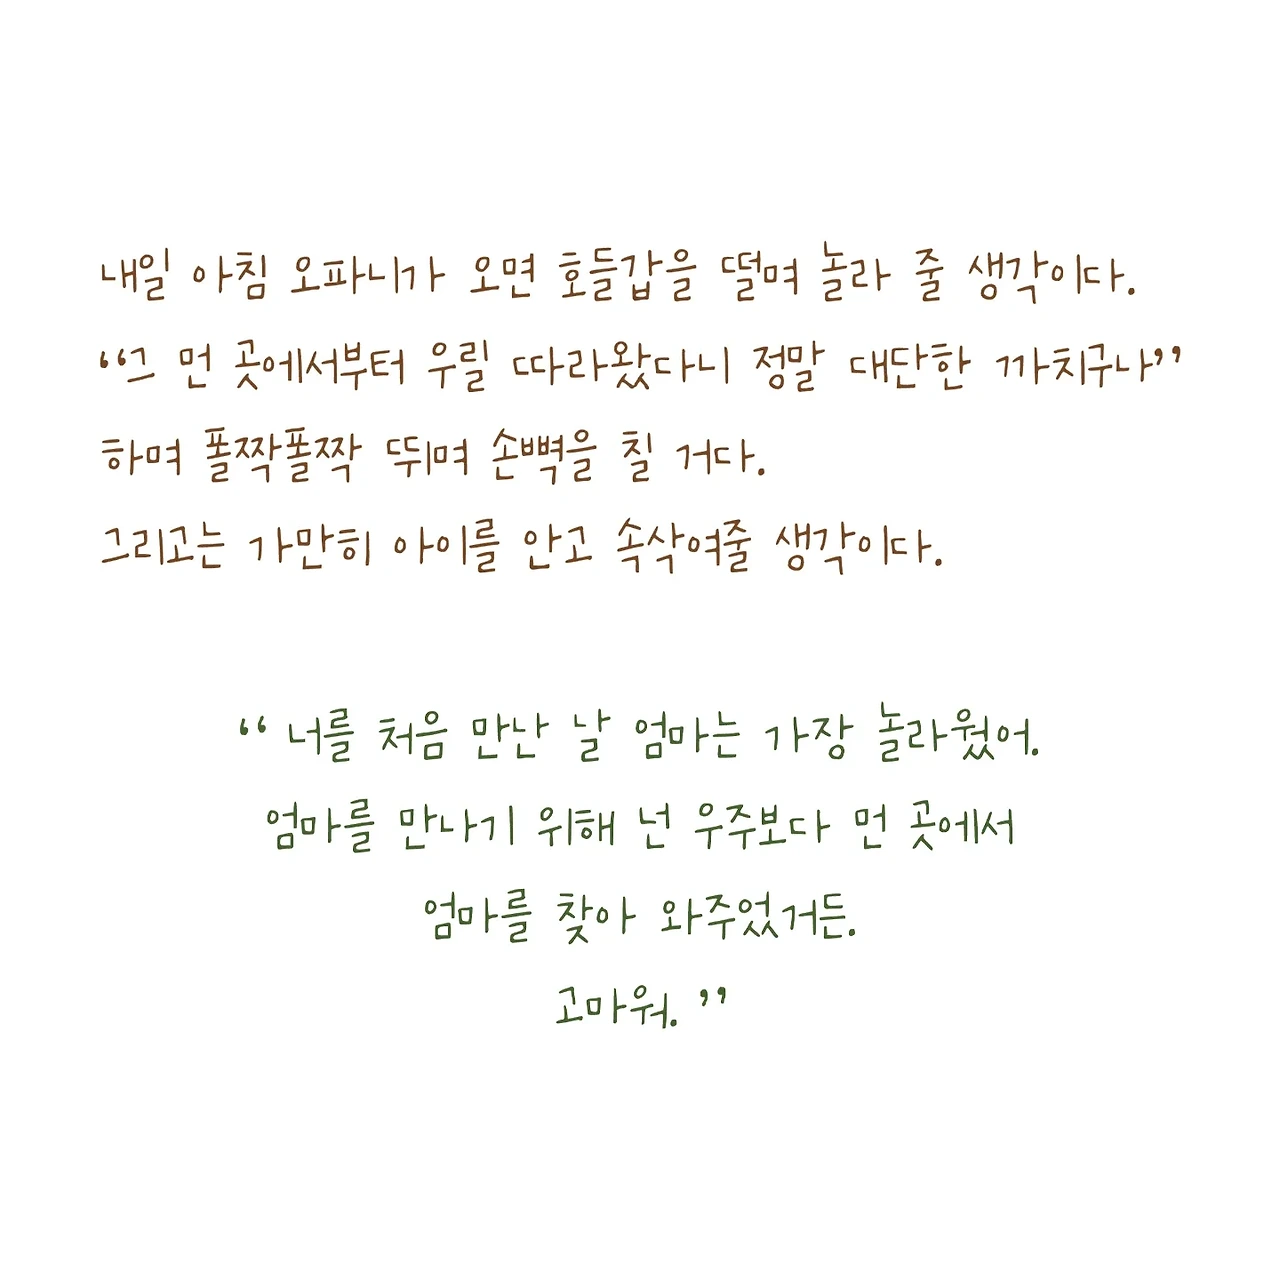 내일 아침 오파니가 오면 호들갑을 떨며 놀라 줄 생각이다.
“그 먼 곳에서부터 우릴 따라왔다니 정말 대단한 까치구나”
하며 폴짝폴짝 뛰며 손뼉을 칠 거다.
그리고는 가만히 아이를 안고 속삭여줄 생각이다.
“ 너를 처음 만난 날 엄마는 가장 놀라웠어.
엄마를 만나기 위해 넌 우주보다 먼 곳에서
엄마를 찾아 와주었거든.
고마워. ”